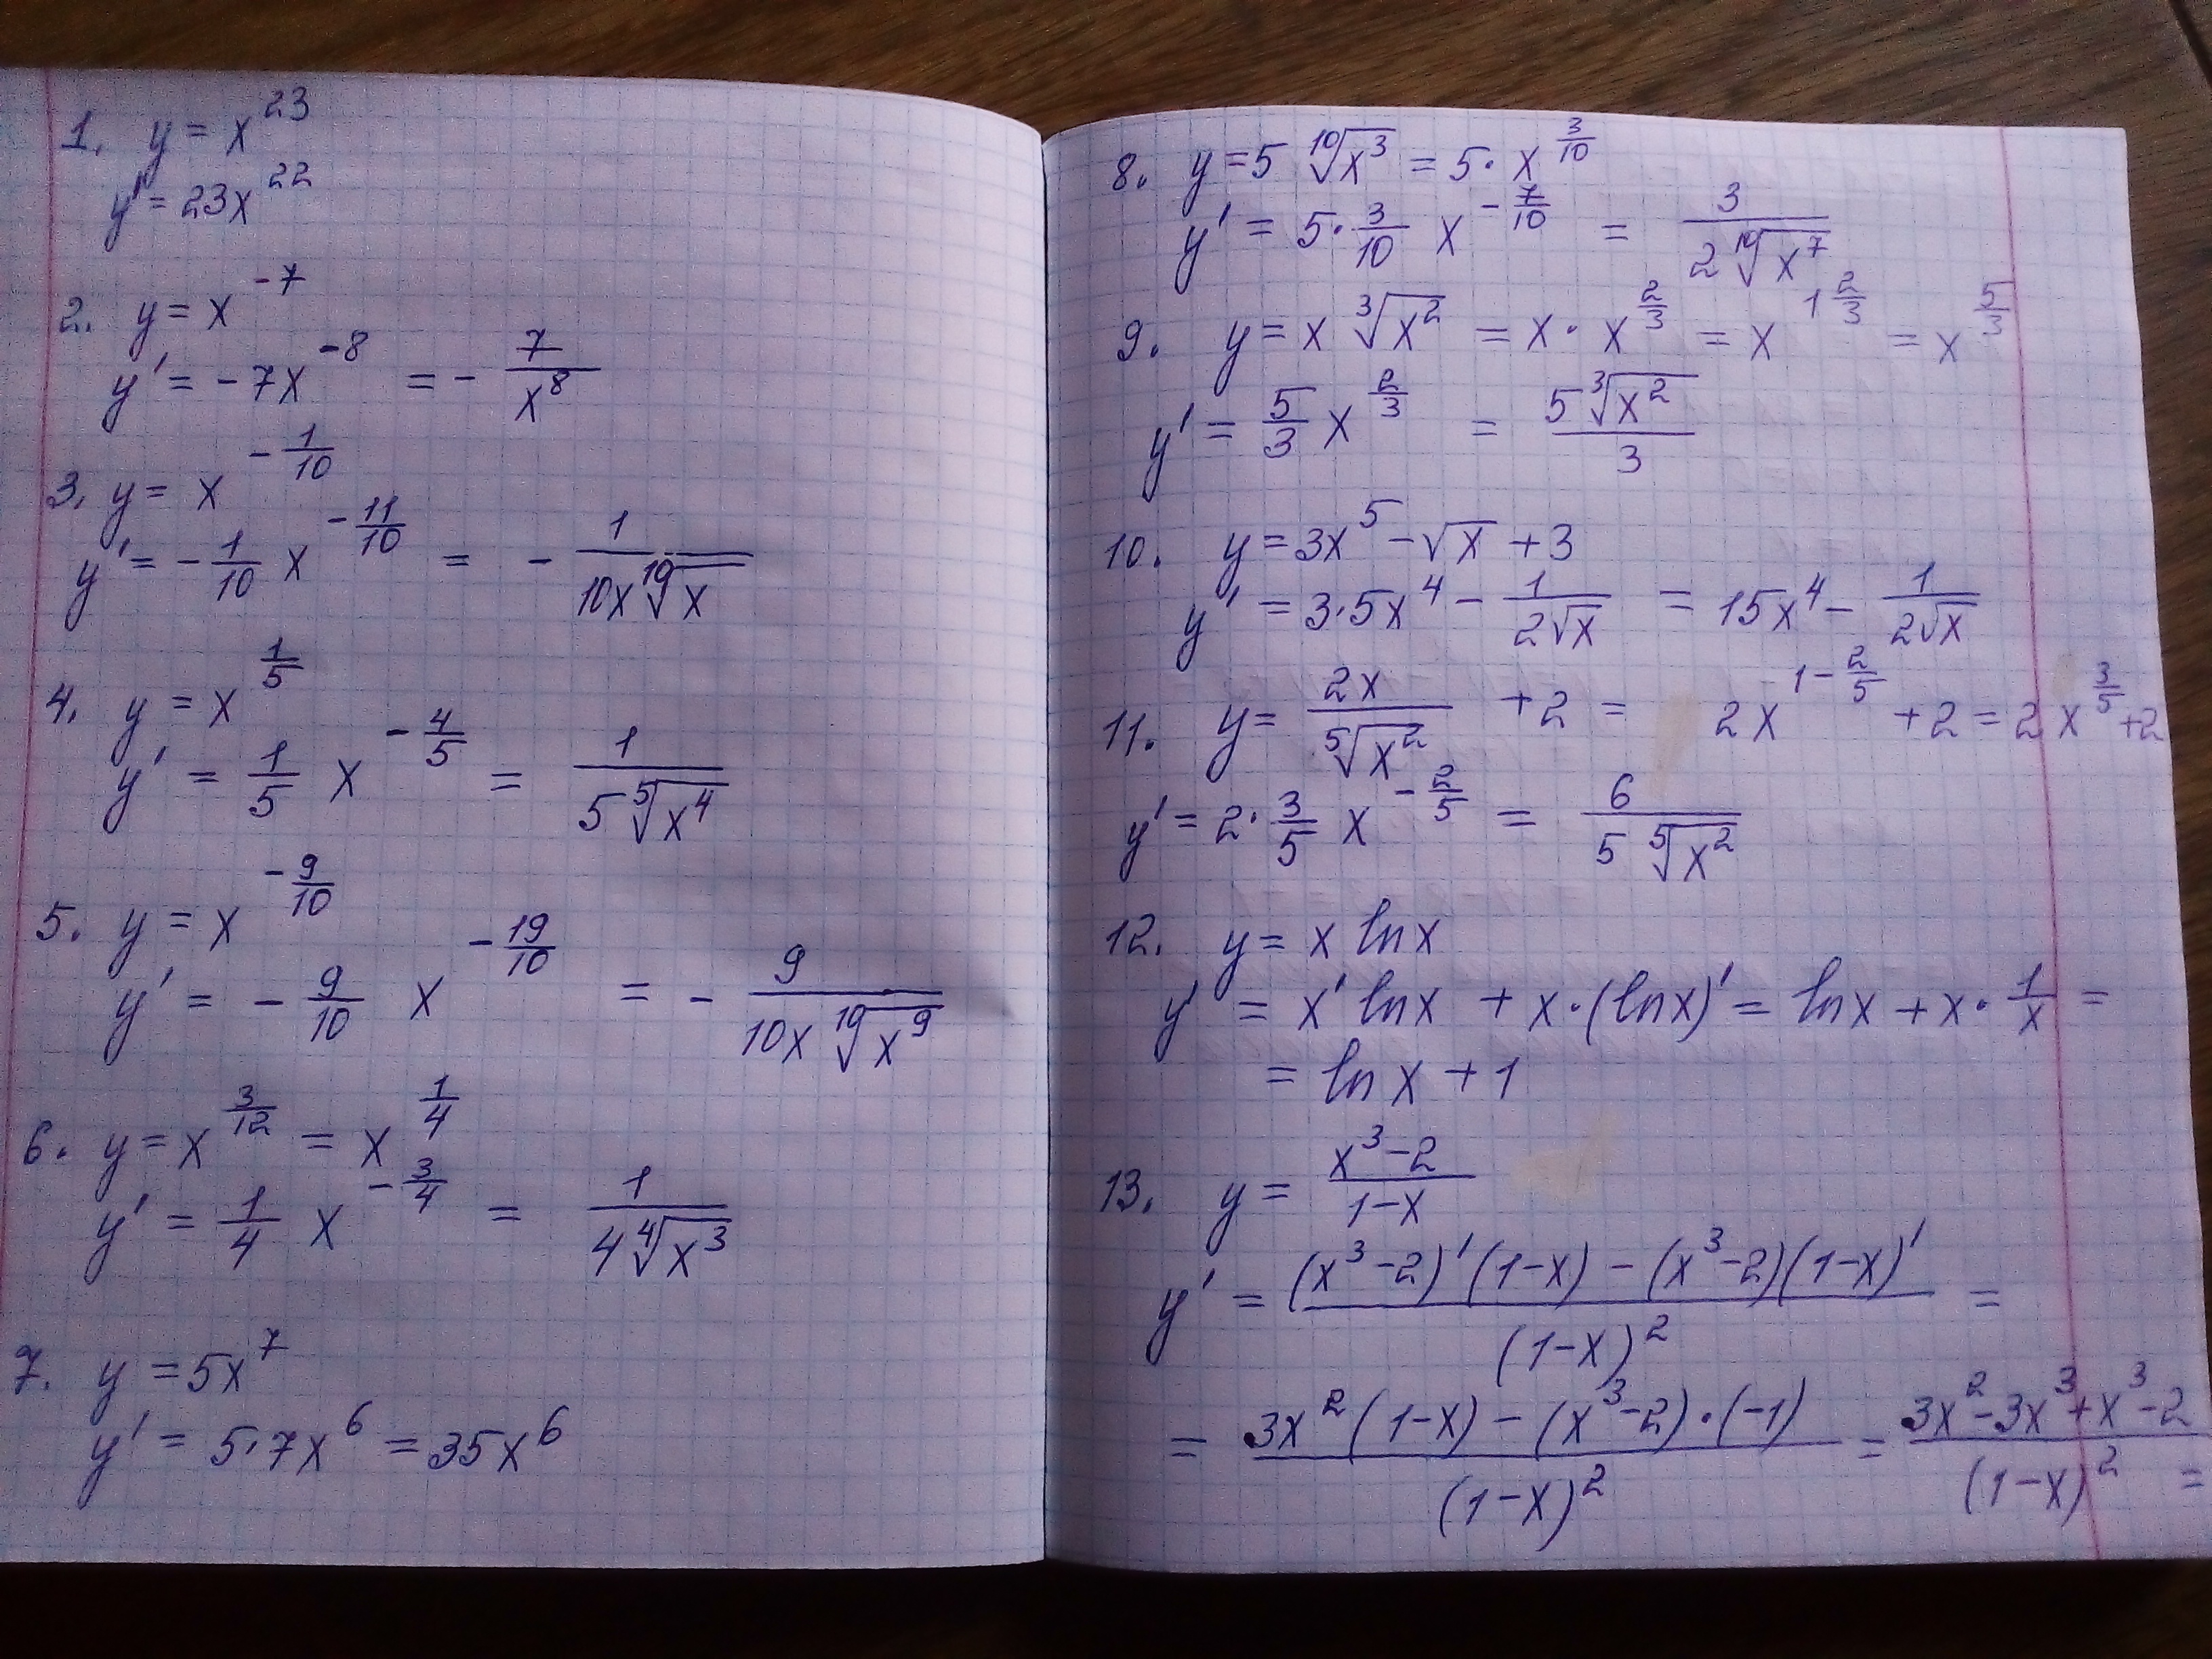 1. y = x^23
y' = 23x^22
2. y = x^-7
y' = -7x^-8 = - 7/x^8
3. y = x^(-1/10)
y' = - 1/10 x^(-11/10) = - 1/(10x ¹⁰√x)
4. y = x^(1/5)
y' = 1/5 x^(-4/5) = 1/(5 ⁵√(x^4))
5. y = x^(-9/10)
y' = - 9/10 x^(-19/10) = - 9/(10x ¹⁰√(x^9))
6. y = x^(3/12) = x^(1/4)
y' = 1/4 x^(-3/4) = 1/(4 ⁴√(x^3))
7. y = 5x^7
y' = 5·7x^6 = 35x^6
8. y = 5 ¹⁰√(x^3) = 5· x^(3/10)
y' = 5· 3/10 x^(-7/10) = 3/(2 ¹⁰√(x^7))
9. y = x ³√(x^2) = x· x^(2/3) = x^(1 2/3) = x^(5/3)
y' = 5/3 x^(2/3) = (5 ³√(x^2))/3
10. y = 3x^5 - √x + 3
y' = 3·5x^4 - 1/(2√x) = 15x^4 - 1/(2√x)
11. y = 2x/(⁵√(x^2)) + 2 = 2x^(1-2/5) + 2 = 2x^(3/5) + 2
y' = 2· 3/5 x^(-2/5) = 6/(5 ⁵√(x^2))
12. y = x ln x
y' = x' ln x + x·(ln x)' = ln x + x· 1/x =
= ln x + 1
13. y = (x^3-2)/(1-x)
y' = ((x^3-2)'(1-x) - (x^3-2)(1-x)')/(1-x)^2 =
= (3x^2(1-x) - (x^3-2)·(-1))/(1-x)^2 = (3x^2-3x^3+x^3-2)/(1-x)^2 =